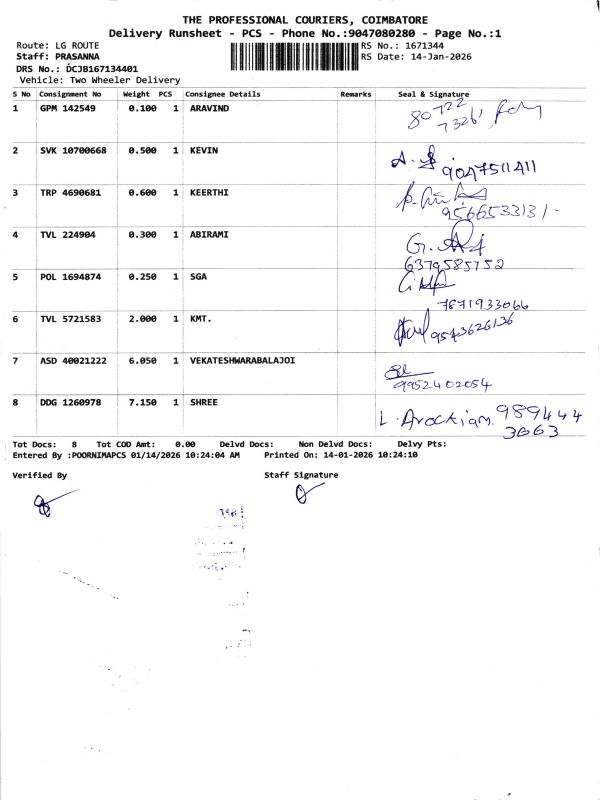 THE PROFESSIONAL COURIERS, COIMBATORE
Delivery Runsheet - PCS - Phone No.:9047080280 - Page No.:1
Route: LG ROUTE RS No.: 1671344
Staff: PRASANNA RS Date: 14-Jan-2026
DRS No.: DCJB167134401
Vehicle: Two Wheeler Delivery
S No Consignment No Weight PCS Consignee Details Remarks Seal & Signature
1 GPM 142549 0.100 1 ARAVIND
2 SVK 10700668 0.500 1 KEVIN 9047511411
3 TRP 4690681 0.600 1 KEERTHI 9566533131.
4 TVL 224904 0.300 1 ABIRAMI
6379585752
5 POL 1694874 0.250 1 SGA
7871933066
6 TVL 5721583 2.000 1 KMT. 9543626136
7 ASD 40021222 6.050 1 VEKATESHWARABALAJOI
9952402054
8 DDG 1260978 7.150 1 SHREE L. Arockiam. 989444
3663
Tot Docs: 8 Tot COD Amt: 0.00 Delvd Docs: Non Delvd Docs: Delvy Pts:
Entered By :POORNIMAPCS 01/14/2026 10:24:04 AM Printed On: 14-01-2026 10:24:10
Verified By Staff Signature